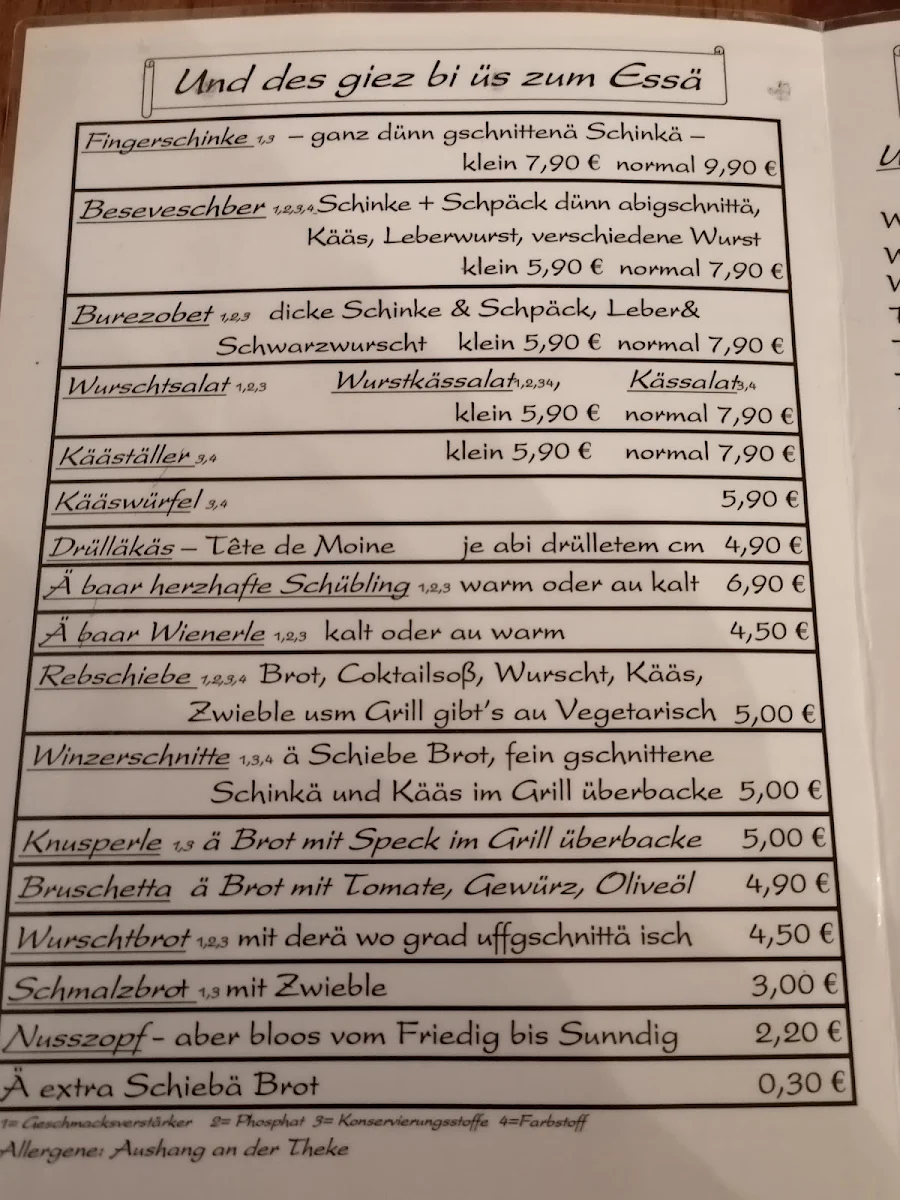 Und des giez bi üs zum Essä
Fingerschinke 1,3 – ganz dünn gschnittenä Schinkä –
klein 7,90 € normal 9,90 €
Beseveschber 1,2,3,4 Schinke + Schpäck dünn abigschnittä,
Kääs, Leberwurst, verschiedene Wurst
klein 5,90 € normal 7,90 €
Burezobet 1,2,3 dicke Schinke & Schpäck, Leber&
Schwarzwurscht klein 5,90 € normal 7,90 €
Wurschtsalat 1,2,3 Wurstkässalat1,2,34, Kässalat3,4
klein 5,90 € normal 7,90 €
Kääställer 3,4 klein 5,90 € normal 7,90 €
Kääswürfel 3,4 5,90 €
Drülläkäs – Tête de Moine je abi drülletem cm 4,90 €
Ä baar herzhafte Schübling 1,2,3 warm oder au kalt 6,90 €
Ä baar Wienerle 1,2,3 kalt oder au warm 4,50 €
Rebschiebe 1,2,3,4 Brot, Coktailsoß, Wurscht, Kääs,
Zwieble usm Grill gibt's au Vegetarisch 5,00 €
Winzerschnitte 1,3,4 ä Schiebe Brot, fein gschnittene
Schinkä und Kääs im Grill überbacke 5,00 €
Knusperle 1,3 ä Brot mit Speck im Grill überbacke 5,00 €
Bruschetta ä Brot mit Tomate, Gewürz, Oliveöl 4,90 €
Wurschtbrot 1,2,3 mit derä wo grad uffgschnittä isch 4,50 €
Schmalzbrot 1,3 mit Zwieble 3,00 €
Nusszopf - aber bloos vom Friedig bis Sunndig 2,20 €
Ä extra Schiebä Brot 0,30 €
1= Geschmacksverstärker 2= Phosphat 3= Konservierungsstoffe 4=Farbstoff
Allergene: Aushang an der Theke